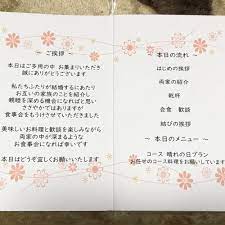 ～ ご挨拶 ～
本日はご多用の中 お集まりいただき
誠にありがとうございます
私たちふたりが結婚するにあたり
お互いの家族のことを紹介し
親睦を深める機会になればと思い
ささやかではありますが
食事会をもうけさせていただきました
美味しいお料理と歓談を楽しみながら
両家の中が深まるような
お食事会になれば幸いです
本日はどうぞ宜しくお願いいたします
～ 本日の流れ ～
はじめの挨拶
両家の紹介
乾杯
会食 歓談
結びの挨拶
～ 本日のメニュー ～
コース 晴れの日プラン
お任せのコース料理をお願いしています